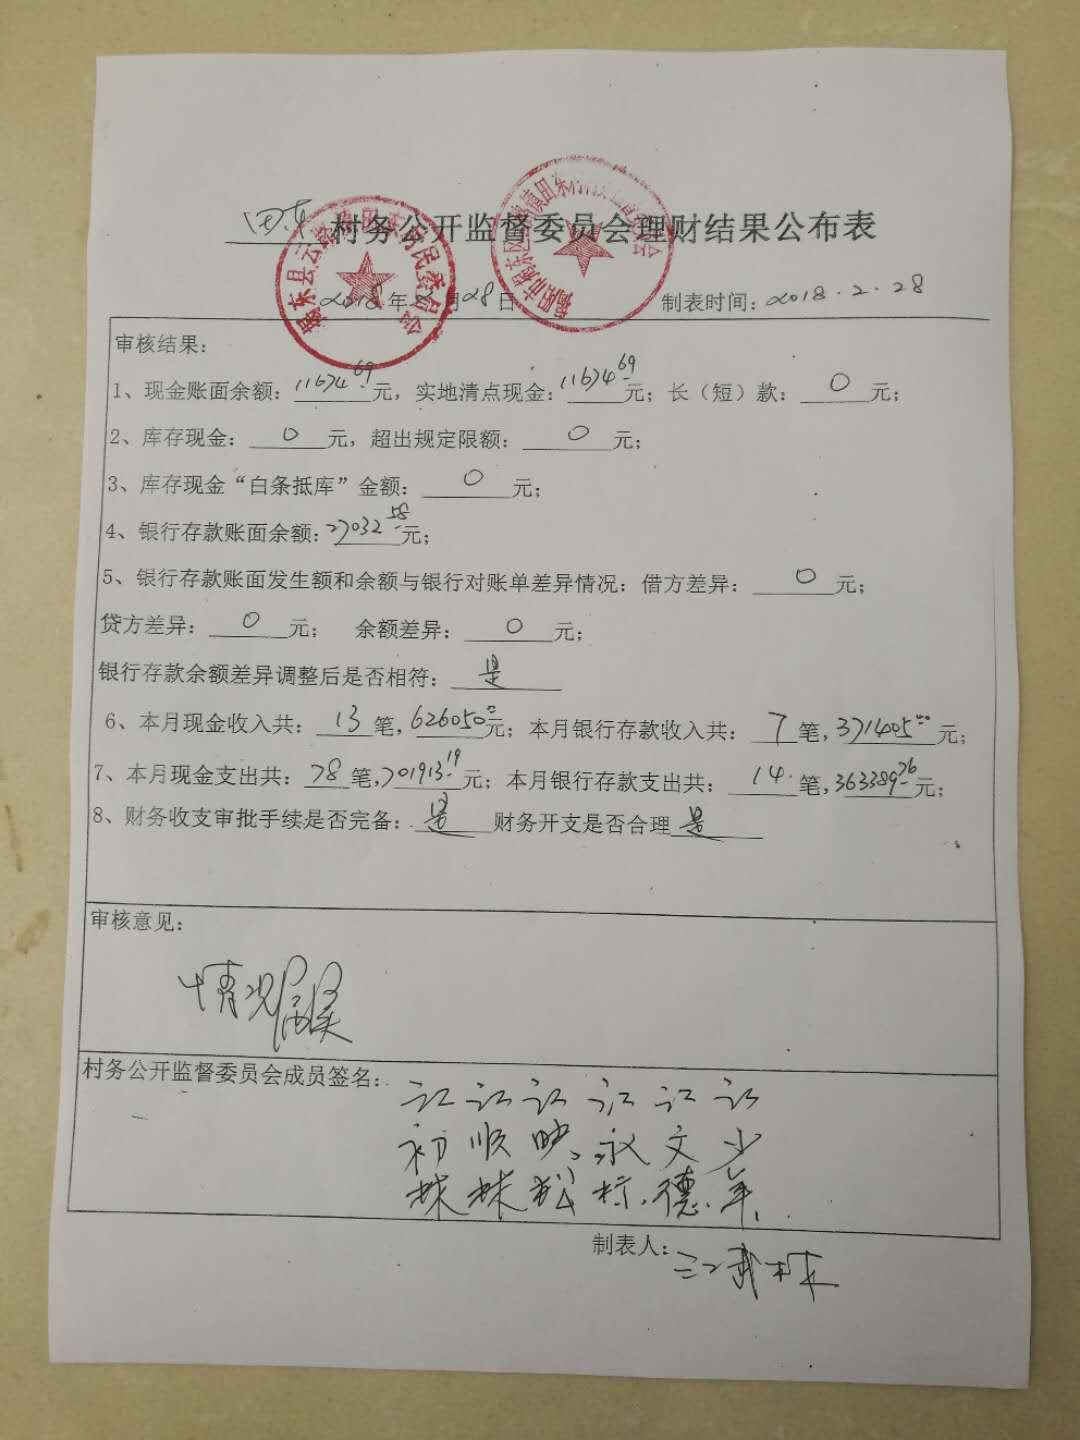 田东 村务公开监督委员会理财结果公布表
2018年2月28日 制表时间：2018.2.28
审核结果：
1、现金账面余额：11674.69元，实地清点现金：11674.69元；长（短）款：0元；
2、库存现金：0元，超出规定限额：0元；
3、库存现金“白条抵库”金额：0元；
4、银行存款账面余额：27032.58元；
5、银行存款账面发生额和余额与银行对账单差异情况：借方差异：0元；
贷方差异：0元； 余额差异：0元；
银行存款余额差异调整后是否相符：是
6、本月现金收入共：13笔，626050.00元；本月银行存款收入共：7笔，371405.00元；
7、本月现金支出共：78笔，701913.19元；本月银行存款支出共：14笔，363389.76元；
8、财务收支审批手续是否完备：是 财务开支是否合理 是
审核意见：
情况属实
村务公开监督委员会成员签名：
江 江 江 江 江 江
初 顺 映 永 文 少
林 林 松 标 德 年
制表人：江